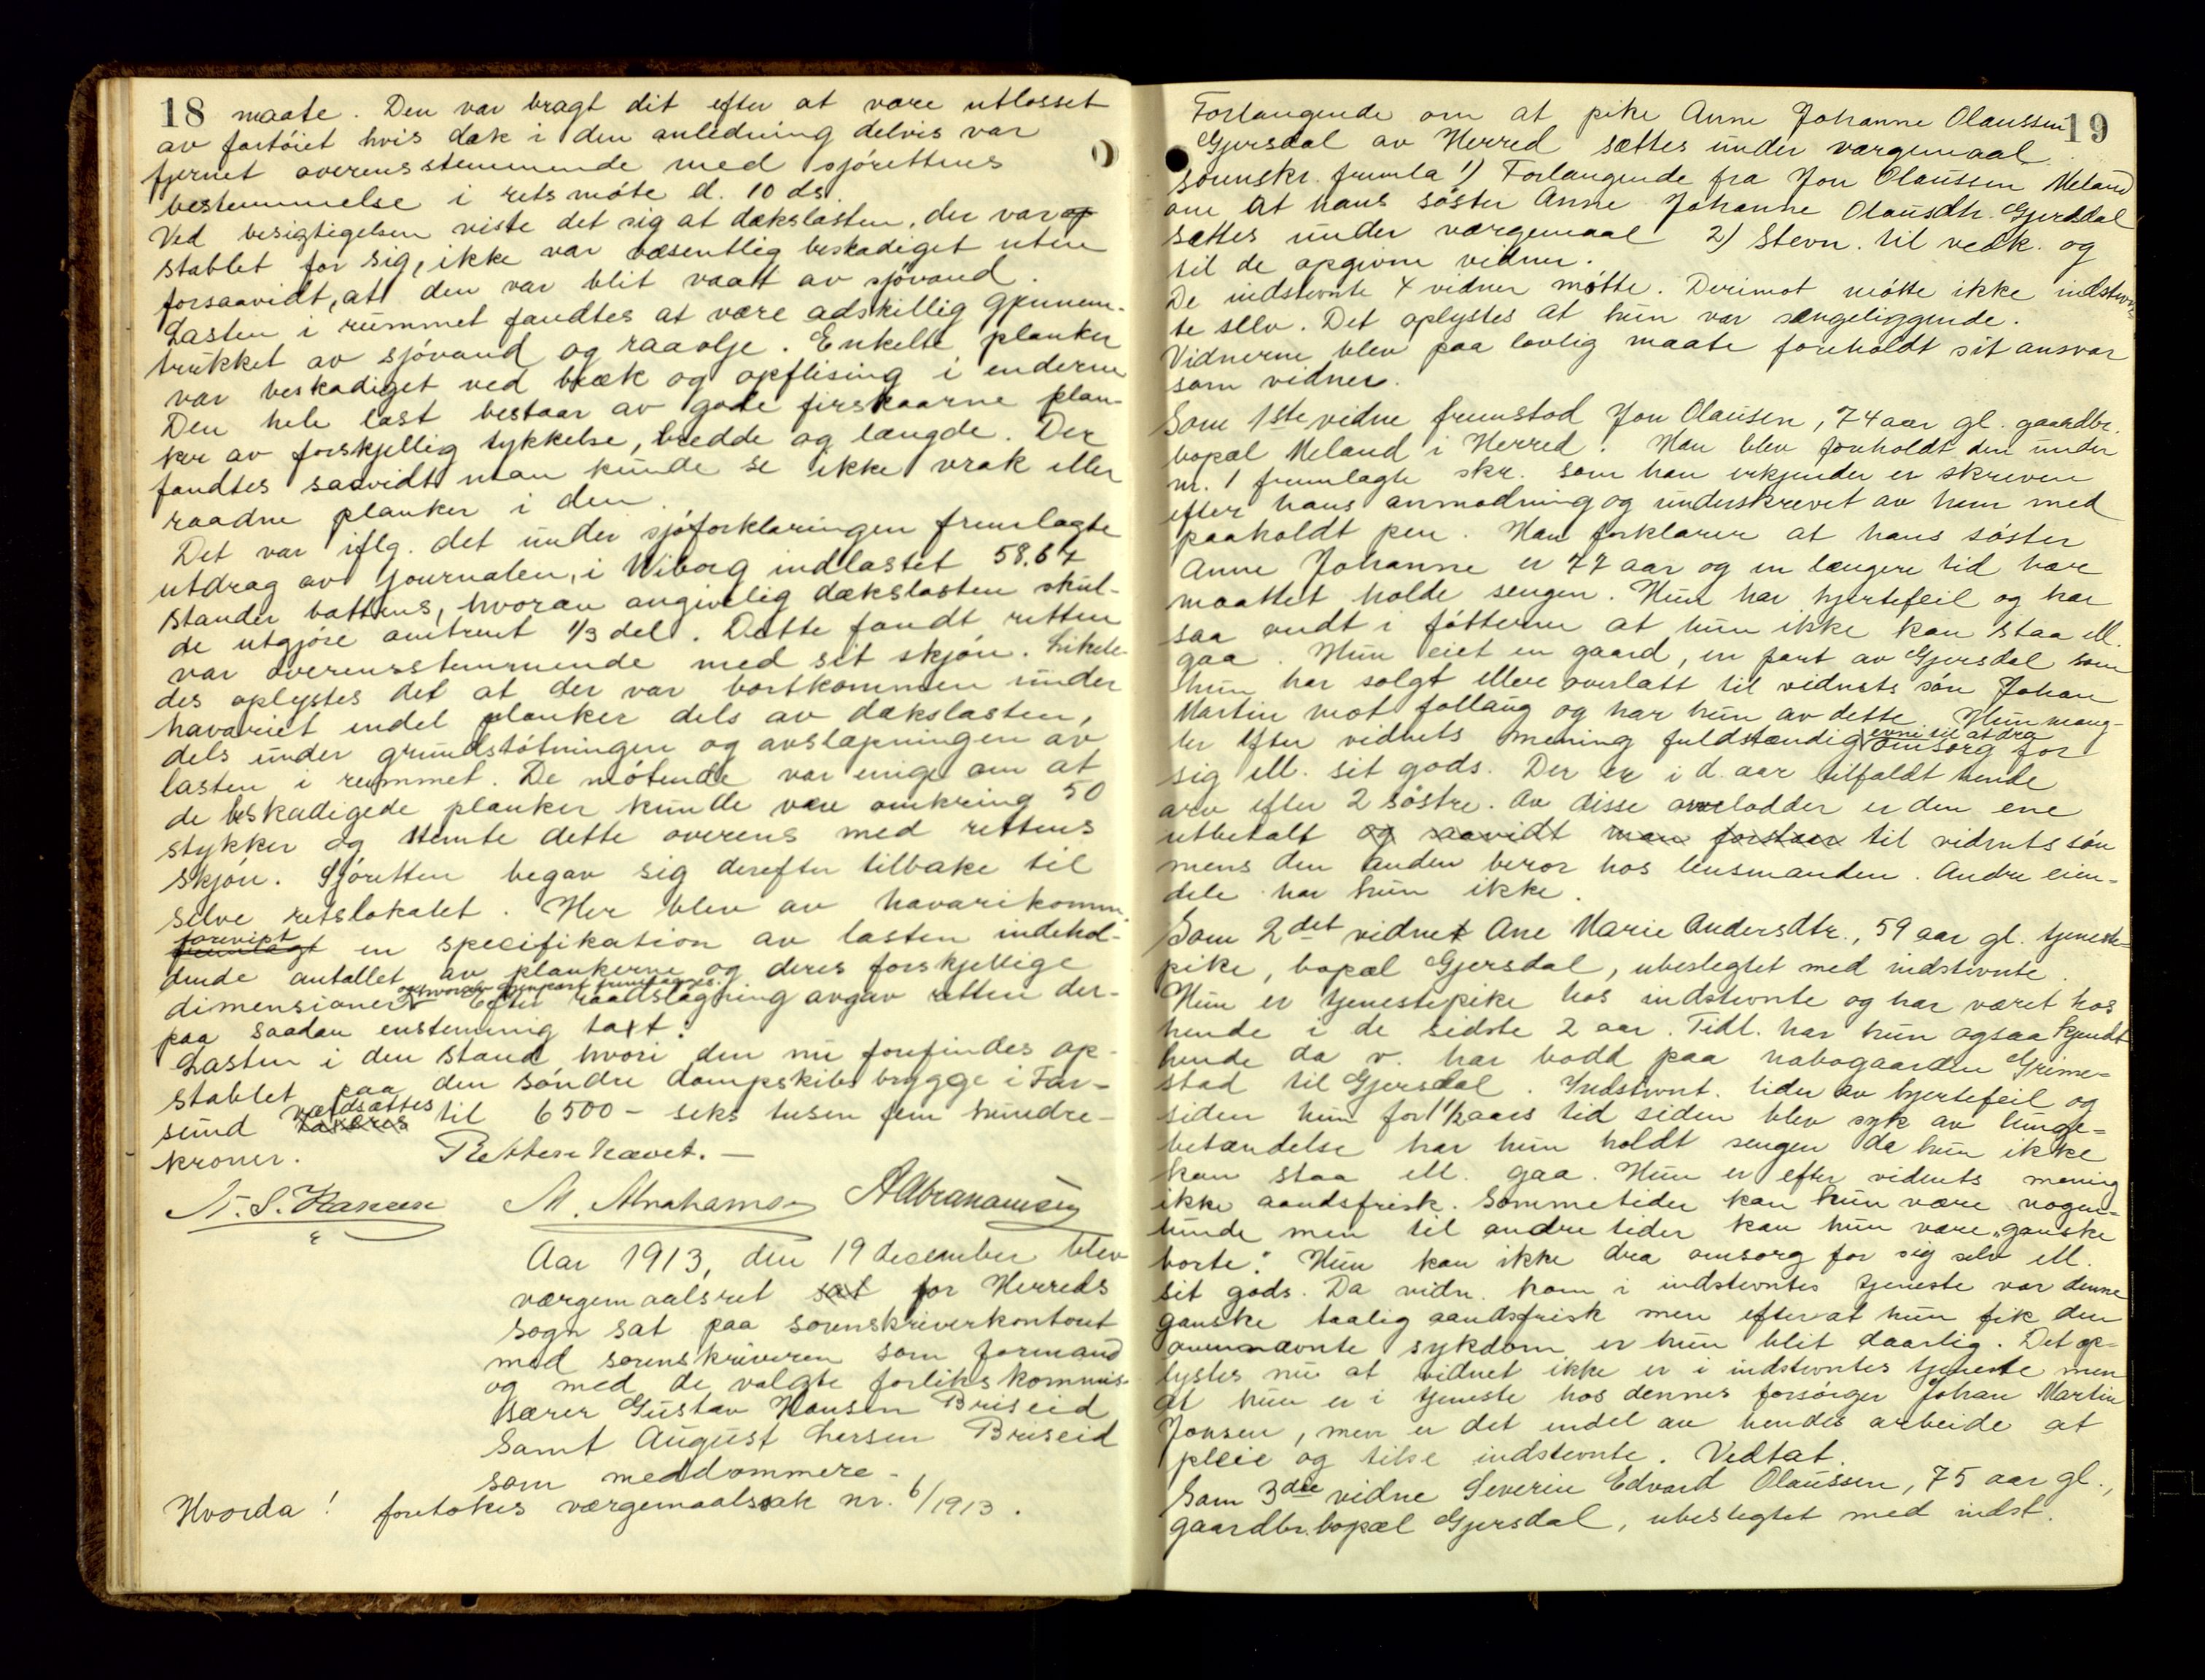 18 maate. Den var bragt dit efter at være utlosset
av fartöiet hvis dæk i den anledning delvis var
fjernet overensstemmende med sjörettens
bestemmelse i rets möte d. 10 ds.
Ved besigtigelsen viste det sig at dækslasten, der var op
stablet for sig, ikke var væsentlig beskadiget uten
forsaavidt, at den var blit vaatt av sjövand.
Lasten i rummet fandtes at være adskillig gjennem-
trukket av sjövand og raaolje. Enkelte planker
var beskadiget ved bræk og opflising i enderne
Den hele last bestaar av gode firskaarne plan-
ker av forskjellig tykkelse, bredde og længde. Der
fandtes saavidt man kunde se ikke vrak eller
raadne planker i den.
Det var iflg. det under sjöforklaringen fremlagte
utdrag av journalen, i Wiborg indlastet 58.64
Stander battens, hvorav angivelig dækslasten skul-
de utgjöre omtrent 1/3 del. Dette fandt retten
var overensstemmende med sit skjön. Likele-
des oplystes det at der var bortkommen under
havariet endel planker dels av dækslasten,
dels under grundstötningen og avslæpningen av
lasten i rummet. De mötende var enige om at
de beskadigede planker kunde være omkring 50
stykker og stemte dette overens med rettens
skjön. Sjöretten begav sig derefter tilbake til
selve retslokalet. Her blev av havarikomm.
forevist
fremlagt en specifikation av lasten indehol-
dende antallet av plankerne og deres forskjellige
dimensioner. Efter raadslagning avgav retten der-
paa saadan enstemmig taxt:
Lasten i den stand hvori den nu forefindes op-
stablet paa den söndre dampskibs brygge i Far-
sund værdsættes til 6500 – seks tusen fem hundre –
kroner.
Retten hævet. –
N. S. Hansen M. Abrahamsen A Abrahamsen
Aar 1913, den 19 december blev
værgemaalsret sat for Herreds
sogn sat paa sorenskriverkontoret
med sorenskriveren som formand
og med de valgte forlikskommis-
særer Gustav Hansen Briseid
samt August Larsen Briseid
som meddommere –
Hvorda! foretokes værgemaalssak nr. 6/1913.
19
Forlangende om at pike Anne Johanne Olaussen
Gjersdal av Herred sættes under værgemaal.
Sorenskr. fremla 1) Forlangende fra Jon Olaussen Meland
om at hans söster Anne Johanne Olausdtr. Gjersdal
sættes under værgemaal 2) Stevn. til vedk. og
til de opgivne vidner.
De indstevnte 4 vidner mötte. Derimot mötte ikke indstevn-
te selv. Det oplystes at hun var sengeliggende.
Vidnerne blev paa lovlig maate foreholdt sit ansvar
som vidner.
Som 1ste vidne fremstod Jon Olausen, 74 aar gl. gaardbr.
bopæl Meland i Herred. Han blev foreholdt den under
nr. 1 fremlagte skr. som han erkjender er skreven
efter hans anmodning og underskrevet av ham med
paaholdt pen. Han forklarer at hans söster
Anne Johanne er 77 aar og en længere tid har
maattet holde sengen. Hun har hjertefeil og har
saa ondt i fötterne at hun ikke kan staa ell.
gaa. Hun eiet en gaard, en part av Gjersdal som
hun har solgt eller overlatt til vidnets sön Johan
Martin mot follaug og har hun av dette. Hun mang-
evne til at dra
ler efter vidnets mening fuldstændig omsorg for
sig ell. sit gods. Der er i d. aar tilfaldt hende
arv efter 2 söstre. Av disse arvelodder er den ene
utbetalt og saavidt man forstaar til vidnets sön
mens den anden beror hos lensmanden. Andre eien-
dele har hun ikke.
Som 2det vidnet Ane Marie Andersdtr., 59 aar gl. tjeneste-
pike, bopæl Gjersdal, ubeslegtet med indstevnte.
Hun er tjenestepike hos indstevnte og har været hos
hende i de sidste 2 aar. Tidl. har hun ogsaa kjendt
hende da v. har bodd paa nabogaarden Grime-
stad til Gjersdal. Indstevnt. lider av hjertefeil og
siden hun for 1 1/2 aars tid siden blev syk av lunge-
betændelse har hun holdt sengen da hun ikke
kan staa ell. gaa. Hun er efter vidnets mening
ikke aandsfrisk. Sommetider kan hun være nogen-
lunde men til andre tider kan hun være „ganske
borte". Hun kan ikke dra omsorg for sig selv ell.
sit gods. Da vidn. kom i indstevntes tjeneste var denne
ganske taalig aandsfrisk men efter at hun fik den
ovennævnte sykdom er hun blit daarlig. Det op-
lystes nu at vidnet ikke er i indstevntes tjeneste men
at hun er i tjeneste hos dennes forsörger Johan Martin
Jonsen, men er det endel av hendes arbeide at
pleie og tilse indstevnte. Vedtat.
Som 3die vidne Severin Edvard Olaussen, 75 aar gl.,
gaardbr. bopæl Gjersdal, ubeslegtet med indst.